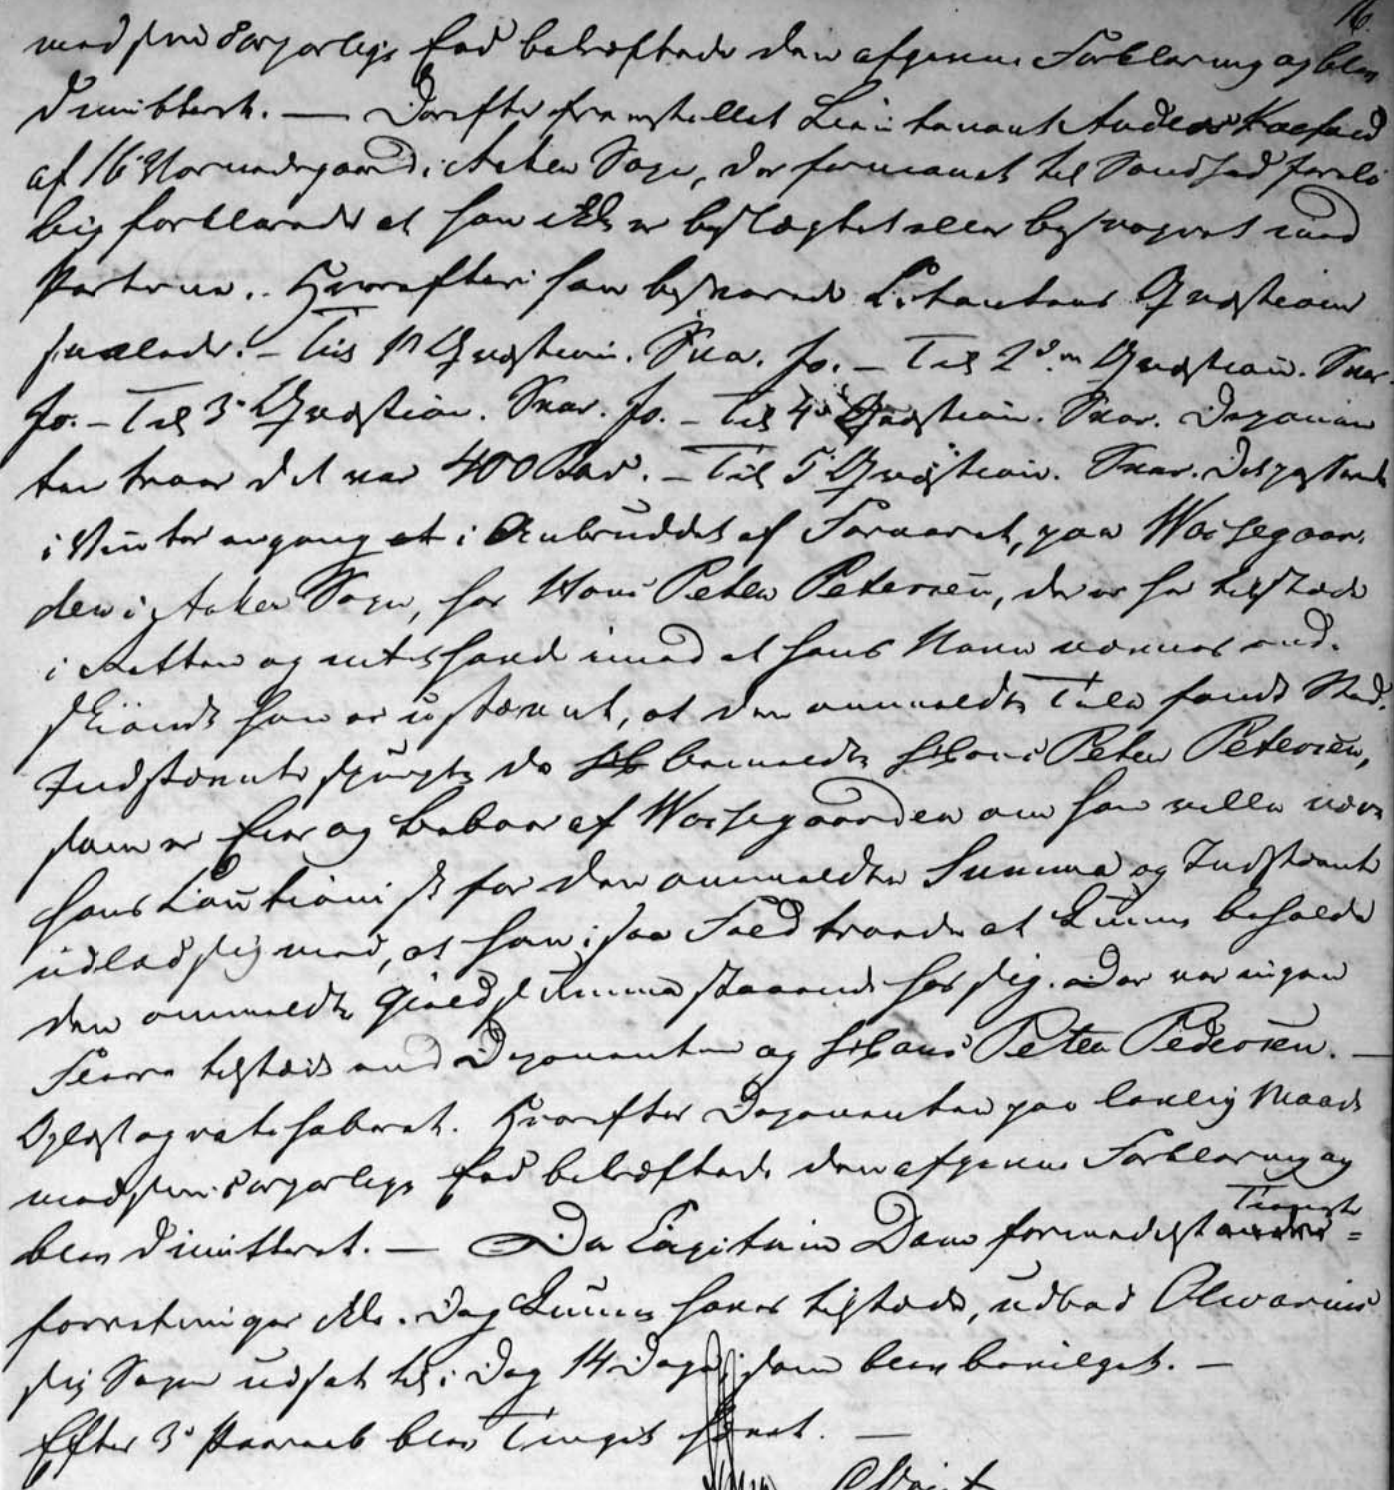 16.
med sin corporlige Eed bekræftede den afgivne Forklaring og blev
dimitteret. — Derefter fremstillet Lieutenant Anders Koefoed
af 16 Vornedegaard i Aaker Sogn, der formanet til Sandhed forelø
big forklarede at han ikke er beslægtet eller besvogret med
Parterne. Hvorefter han besvarede Citantens Qvæstioner
saaledes: – Til 1ste Qvæstion. Svar. Jo. – Til 2den Qvæstion. Svar.
Jo. – Til 3die Qvæstion. Svar. Jo. – Til 4de Qvæstion. Svar. Deponen
ten troer det var 400 Rbd. – Til 5 Qvæstion. Svar. Det passerede
i Vinter engang at i Anbruddet af Foraaret, paa Woisegaar
den i Aaker Sogn, hos Hans Peter Petersen, der er her tilstæde
i Retten og intet havde imod at hans Navn nævnes end
skiønt han er ustævnt, at den ommeldte Tale fandt Sted.
Indstævnte spurgte da bemeldte Hans Peter Petersen,
som er Eier og Beboer af Woisegaarden om han ville være
hans Cautionist for den ommeldte Summa og Indstævnte
udlod sig med, at han i saa Fald troede at kunne beholde
den ommeldte Gieldssumma staaende hos sig. Der var ingen
Fleere tilstæde end Deponenten og Hans Peter Pedersen. —
Oplæst og ratihaberet. Hvorefter Deponenten paa lovlig Maade
med sin corporlige Eed bekræftede den afgivne Forklaring og
blev dimitteret. — Da Capitain Dam formedelst Tieneste
forretninger ikke i Dag kunne haves tilstæde, udbad Olivarius
sig Sagen udsat til i Dag 14 Dage, som blev bevilget. —
Efter 3de Paaraab blev Tinget hævet. —